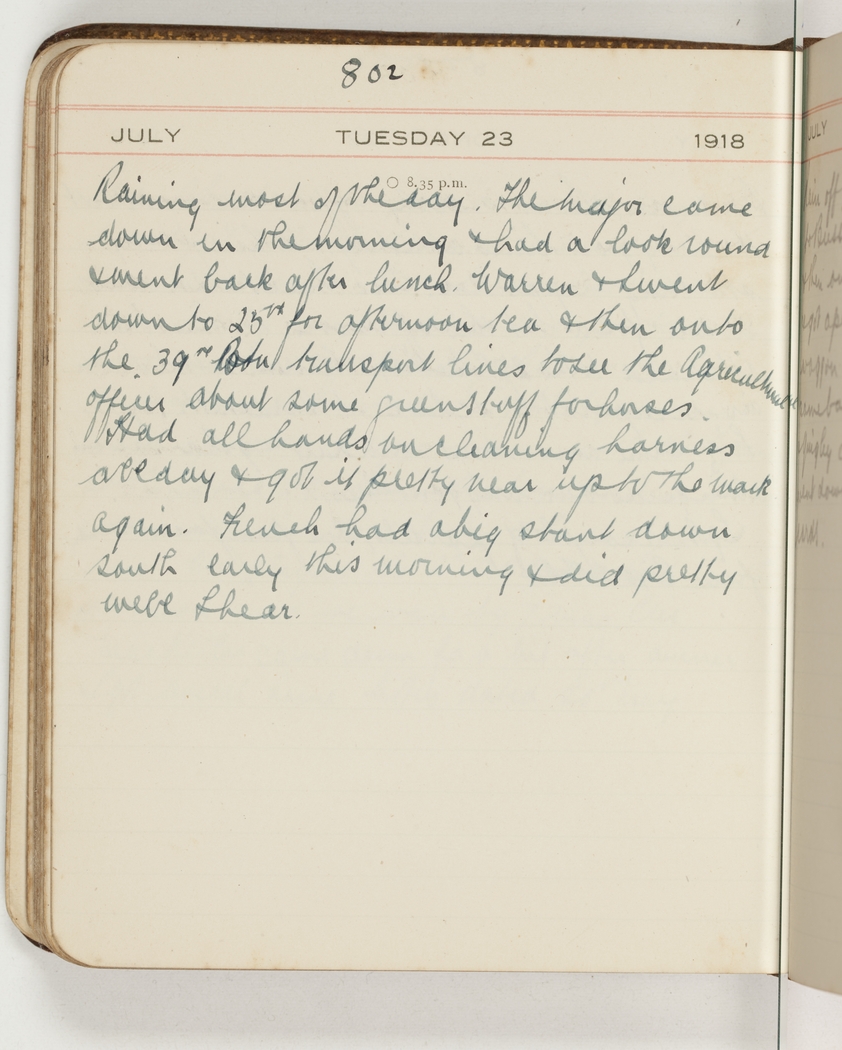 802
JULY TUESDAY 23 1918
○ 8.35 p.m.
Raining most of the day. The Major came
down in the morning & had a look round
& went back after lunch. Warren & I went
down to 25th for afternoon tea & then onto
the 39th Batn transport lines to see the Agricultural
officer about some green stuff for horses.
Had all hands on cleaning harness
all day & got it pretty near up to the mark
again. French had a big stunt down
south early this morning & did pretty
well I hear.
JULY